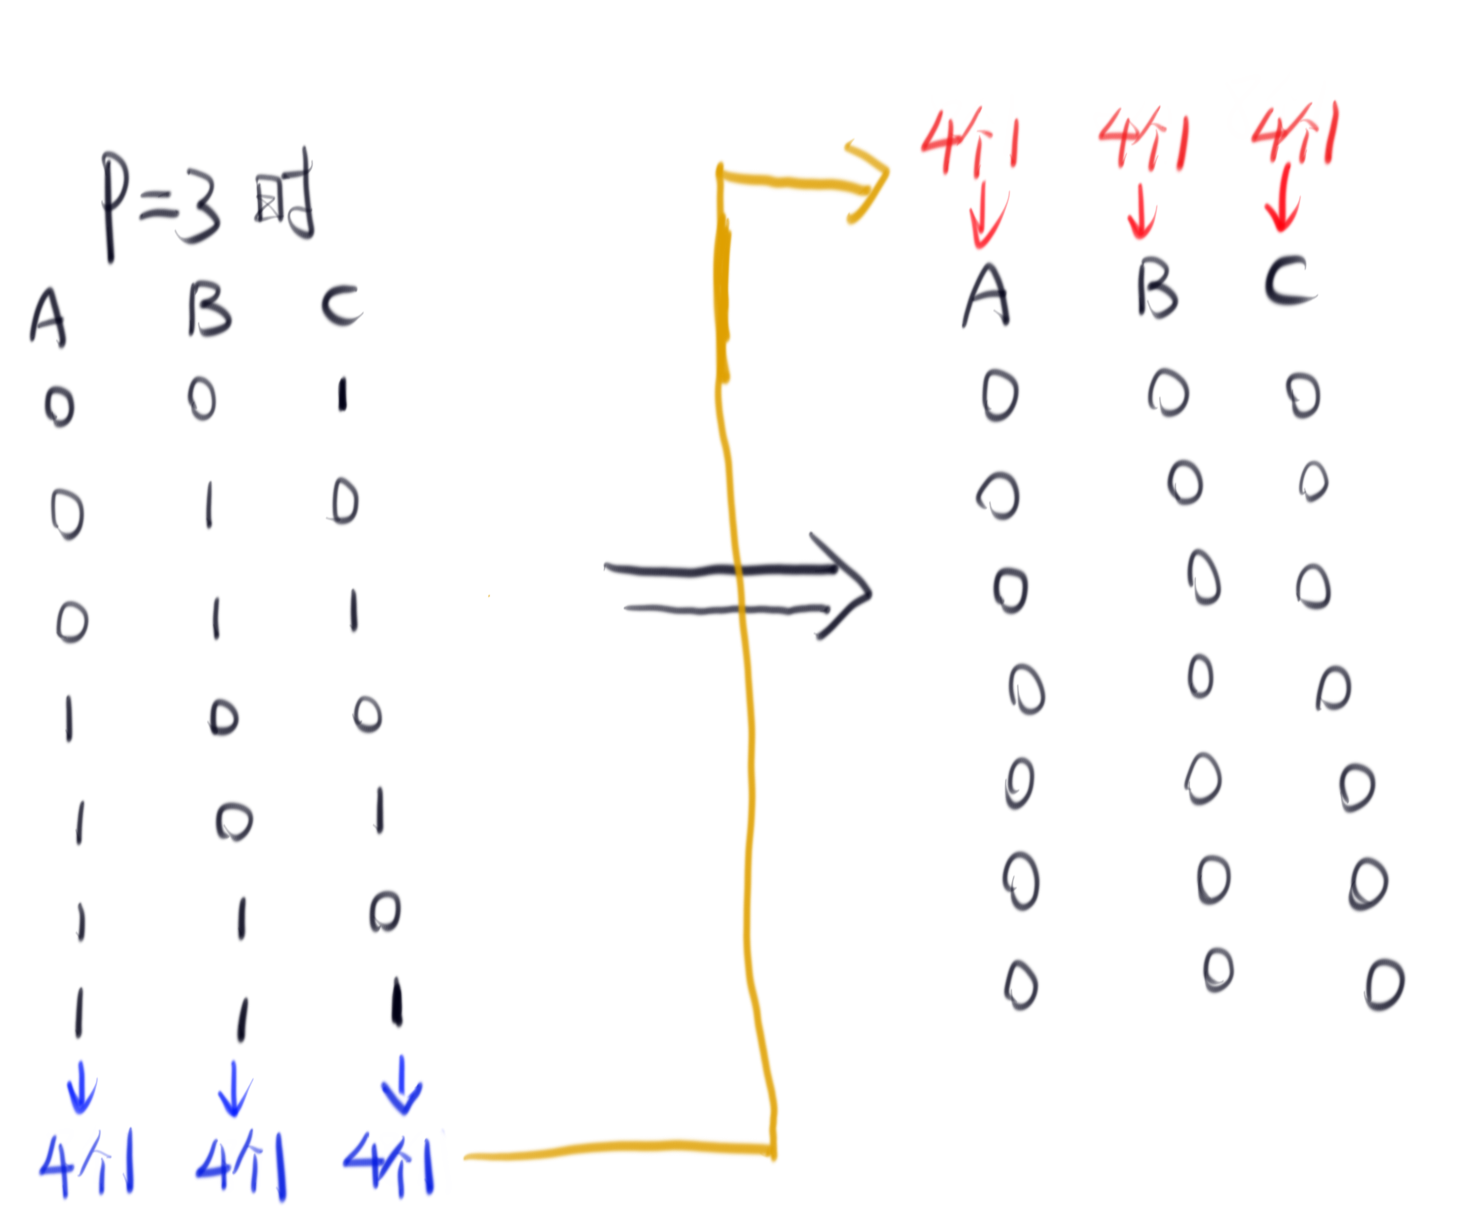 P=3时
A B C
0 0 1
0 1 0
0 1 1
1 0 0
1 0 1
1 1 0
1 1 1
4个1 4个1 4个1
4个1 4个1 4个1
A B C
0 0 0
0 0 0
0 0 0
0 0 0
0 0 0
0 0 0
0 0 0